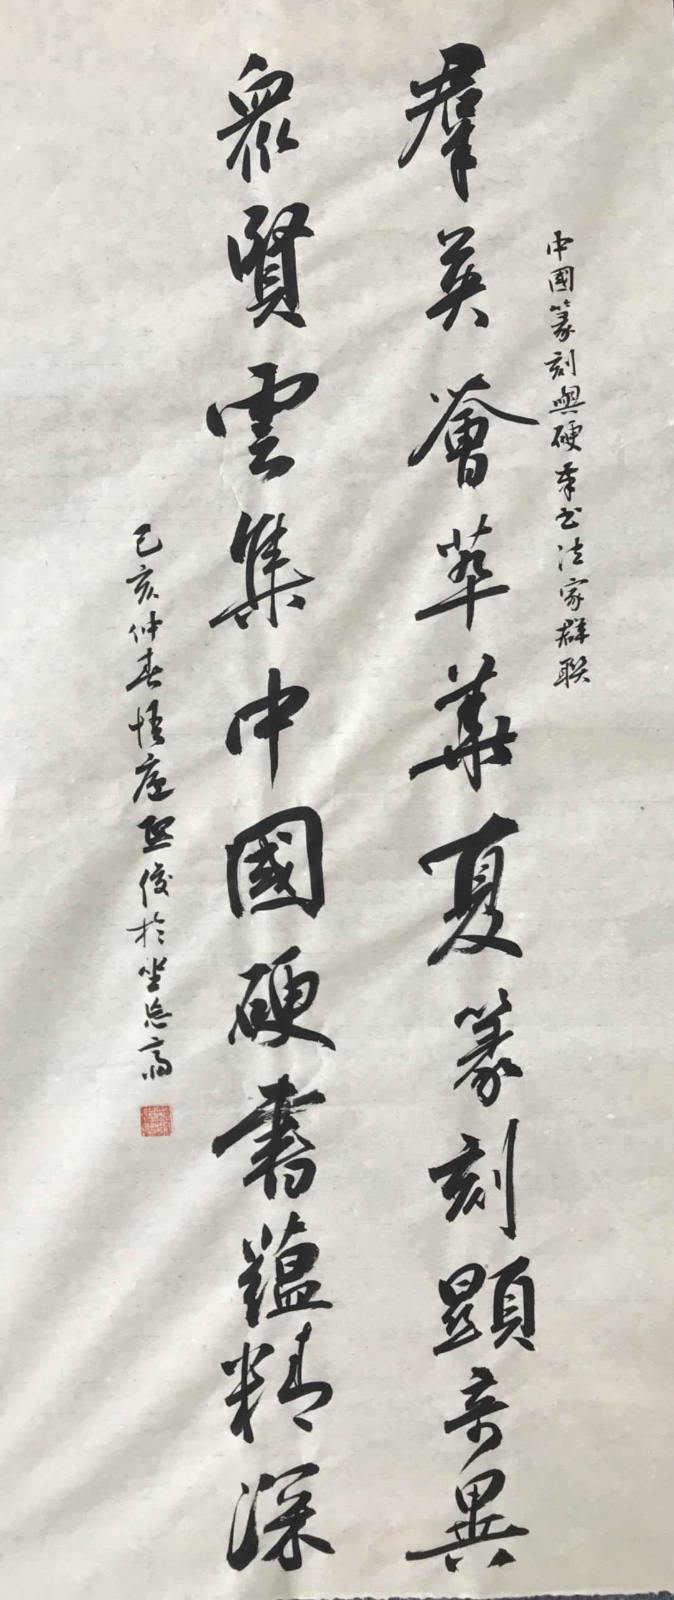 中國篆刻與硬筆书法家群联
羣英薈萃華夏篆刻顯奇異
衆賢雲集中國硬書蘊精深
己亥仲春悟庐熙俊於坐忘斋